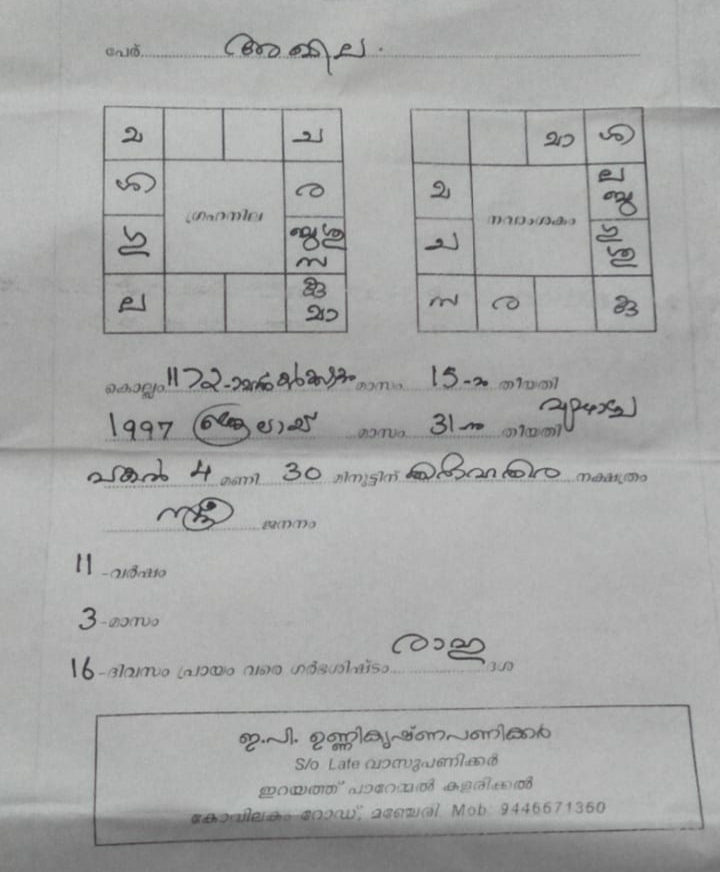 പേര് അഖില.
ച ച ചാ ശി
ശി ര ച ല ബു
ഗ്രഹനില നവാംശകം
ഗു ബു ശു സ ച ഗു ശു
ല കു മാ സ ര കു
കൊല്ലം 1172-ാമത് കർക്കടകം മാസം 15-ാം തീയതി
1997 ജൂലായ് മാസം 31-ാം തീയതി വ്യാഴാഴ്ച
പകൽ 4 മണി 30 മിനുട്ടിന് തിരുവാതിര നക്ഷത്രം
സ്ത്രീ ജനനം
11 -വർഷം
3 -മാസം
16 -ദിവസം പ്രായം വരെ ഗർഭശിഷ്ടം രാഹു ദശ
ഇ.പി. ഉണ്ണികൃഷ്ണപണിക്കർ
S/o Late വാസുപണിക്കർ
ഇറയത്ത് പാറേമ്മൽ കളരിക്കൽ
കോവിലകം റോഡ്, മഞ്ചേരി Mob: 9446671360